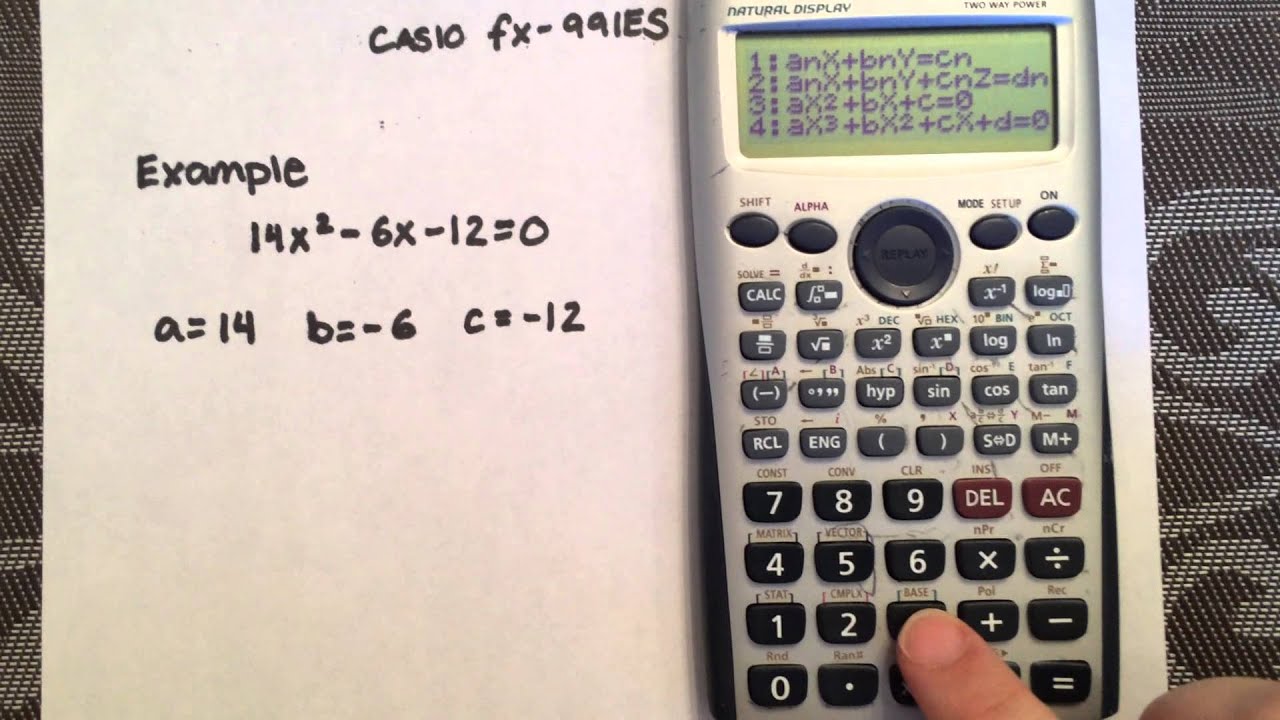 CASIO fx-991ES
Example
14x²-6x-12=0
a=14 b=-6 c=-12
NATURAL DISPLAY TWO WAY POWER
1:anX+bnY=cn
2:anX+bnY+cnZ=dn
3:aX²+bX+c=0
4:aX³+bX²+cX+d=0
SHIFT ALPHA MODE SETUP ON
REPLAY
SOLVE = d/dx :  x!
CALC x⁻¹ log
x³ DEC HEX 10 BIN e OCT
x² log ln
∠ A ← B Abs C sin⁻¹ D cos⁻¹ E tan⁻¹ F
(−) °,,, hyp sin cos tan
STO ← i % , X Y M− M
RCL ENG ( ) S⇔D M+
CONST CONV CLR INS OFF
7 8 9 DEL AC
MATRIX VECTOR nPr nCr
4 5 6 × ÷
STAT CMPLX BASE Pol Rec
1 2 + −
Rnd Ran#
0 . =